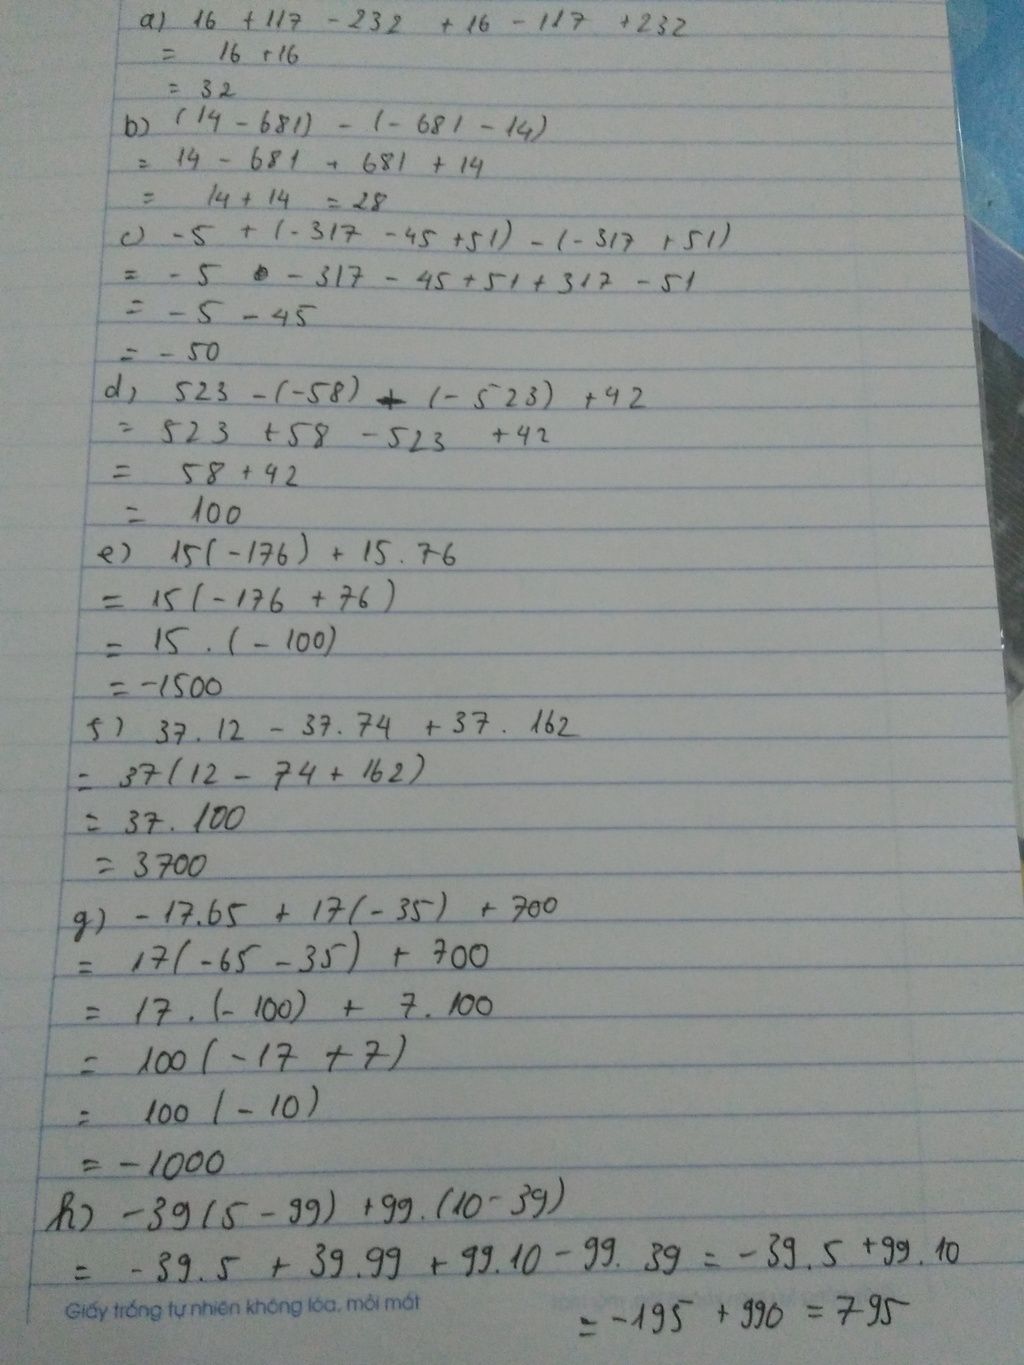 a) 16 + 117 - 232 + 16 - 117 + 232
= 16 + 16
= 32
b) (14 - 681) - (- 681 - 14)
= 14 - 681 + 681 + 14
= 14 + 14 = 28
c) -5 + (-317 - 45 + 51) - (-317 + 51)
= -5 - 317 - 45 + 51 + 317 - 51
= -5 - 45
= -50
d) 523 - (-58) + (-523) + 42
= 523 + 58 - 523 + 42
= 58 + 42
= 100
e) 15(-176) + 15.76
= 15(-176 + 76)
= 15.(-100)
= -1500
f) 37.12 - 37.74 + 37.162
= 37(12 - 74 + 162)
= 37.100
= 3700
g) -17.65 + 17(-35) + 700
= 17(-65 - 35) + 700
= 17.(-100) + 7.100
= 100(-17 + 7)
= 100(-10)
= -1000
h) -39(5 - 99) + 99.(10 - 39)
= -39.5 + 39.99 + 99.10 - 99.39 = -39.5 + 99.10
= -195 + 990 = 795
Giấy trắng tự nhiên không lóa, mỏi mắt